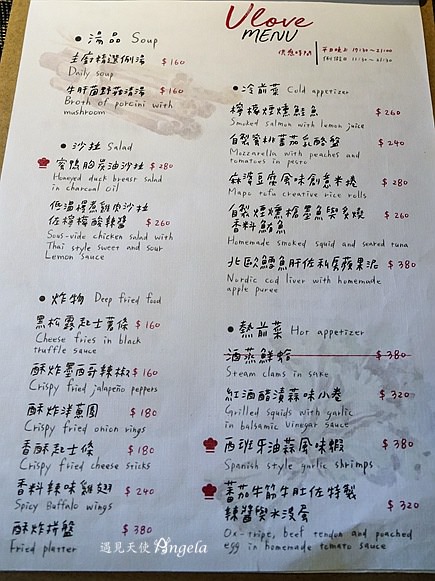 Vlove
MENU
供應時間
平日晚上 17:30~21:00
假日 11:30~21:30
湯品 Soup
主廚精選例湯 $160
Daily soup
牛肝菌野菇清湯 $160
Broth of porcini with
mushroom
沙拉 Salad
蜜鴨胸炭油沙拉 $280
Honeyed duck breast salad
in charcoal oil
低溫得意雞肉沙拉
佐檸檬酸辣醬 $260
Sous-vide chicken salad with
Thai style sweet and sour
Lemon sauce
炸物 Deep fried food
黑松露起士薯條 $160
Cheese fries in black
truffle sauce
酥炸墨西哥辣椒 $160
Crispy fried jalapeño peppers
酥炸洋蔥圈 $180
Crispy fried onion rings
香酥起士條 $180
Crispy fried cheese sticks
香料辣味雞翅 $240
Spicy Buffalo wings
酥炸拼盤 $380
Fried platter
冷前菜 Cold appetizer
檸檬煙燻鮭魚 $260
Smoked salmon with lemon juice
自製蜜桃蕃茄乳酪盤 $240
Mozzarella with peaches and
tomatoes in pesto
麻婆豆腐風味創意米捲 $280
Mapo tofu creative rice rolls
自製煙燻槍墨魚與炙燒
香料鮪魚 $260
Homemade smoked squid and seared tuna
北歐鱈魚肝佐私房蘋果泥 $380
Nordic cod liver with homemade
apple puree
熱前菜 Hot appetizer
酒蒸鮮蛤 $380
Steam clams in sake
紅酒醋漬蒜味小卷 $320
Grilled squids with garlic
in balsamic vinegar sauce
西班牙油蒜風味蝦 $380
Spanish style garlic shrimps
蕃茄牛筋牛肚佐特製
辣醬與水波蛋 $320
Ox-tripe, beef tendon and poached
egg in homemade tomato sauce
遇見天使 Angela